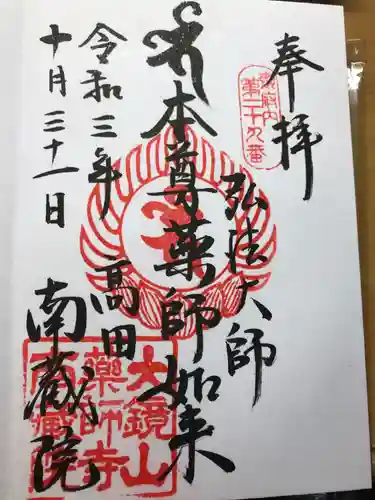 奉拝
東京府内
第二十九番
弘法大師
本尊薬師如来
令和三年
十月三十一日
高田
南蔵院
大鏡山
薬師寺
南蔵院